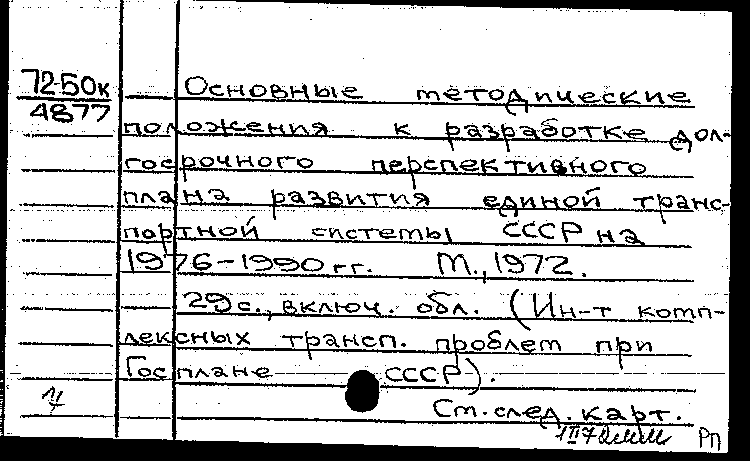 72-50к
4877
Основные методические
положения к разработке дол-
госрочного перспективного
плана развития единой транс-
портной системы СССР на
1976-1990 гг. М., 1972.
29 с., включ. обл. (Ин-т комп-
лексных трансп. проблем при
Госплане СССР).
См. след. карт.
РП